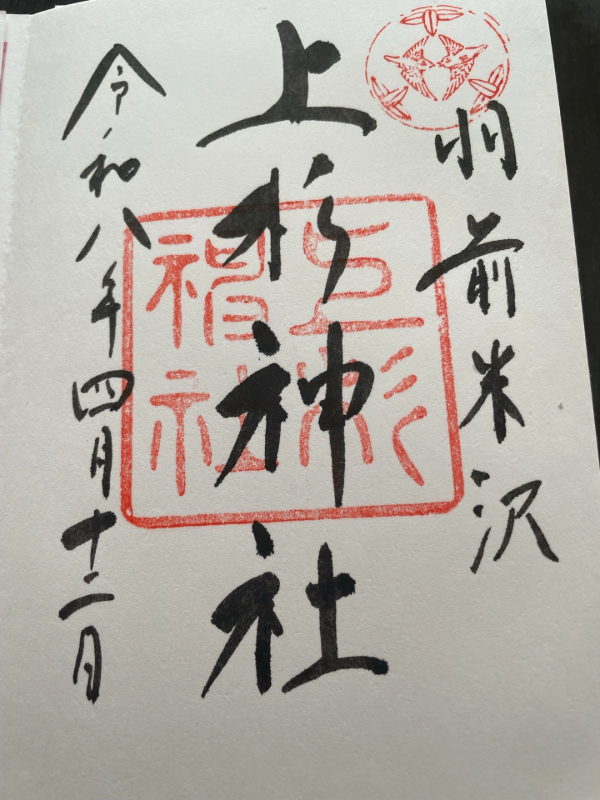 羽前米沢
上杉神社
上杉神社
令和八年四月十二日